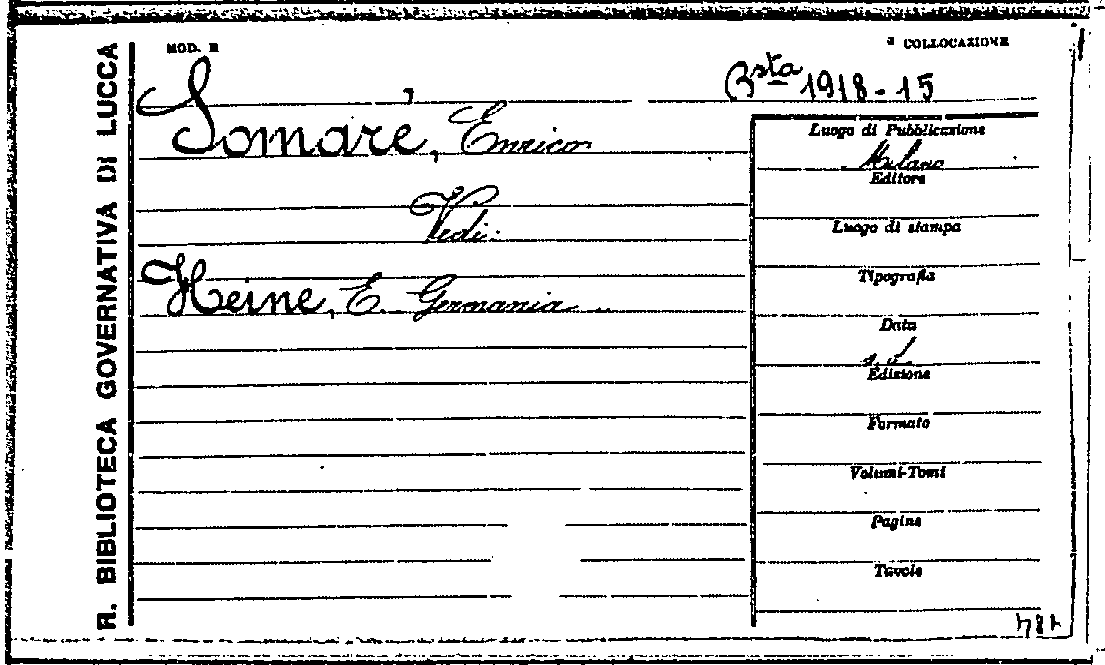 R. BIBLIOTECA GOVERNATIVA DI LUCCA
MOD. E
COLLOCAZIONE
Bsta 1918-15
Somaré, Enrico
Vedi:
Heine, E. Germania
Luogo di Pubblicazione
Milano
Editore
Luogo di stampa
Tipografia
Data
s. d.
Edizione
Formato
Volumi-Tomi
Pagine
Tavole